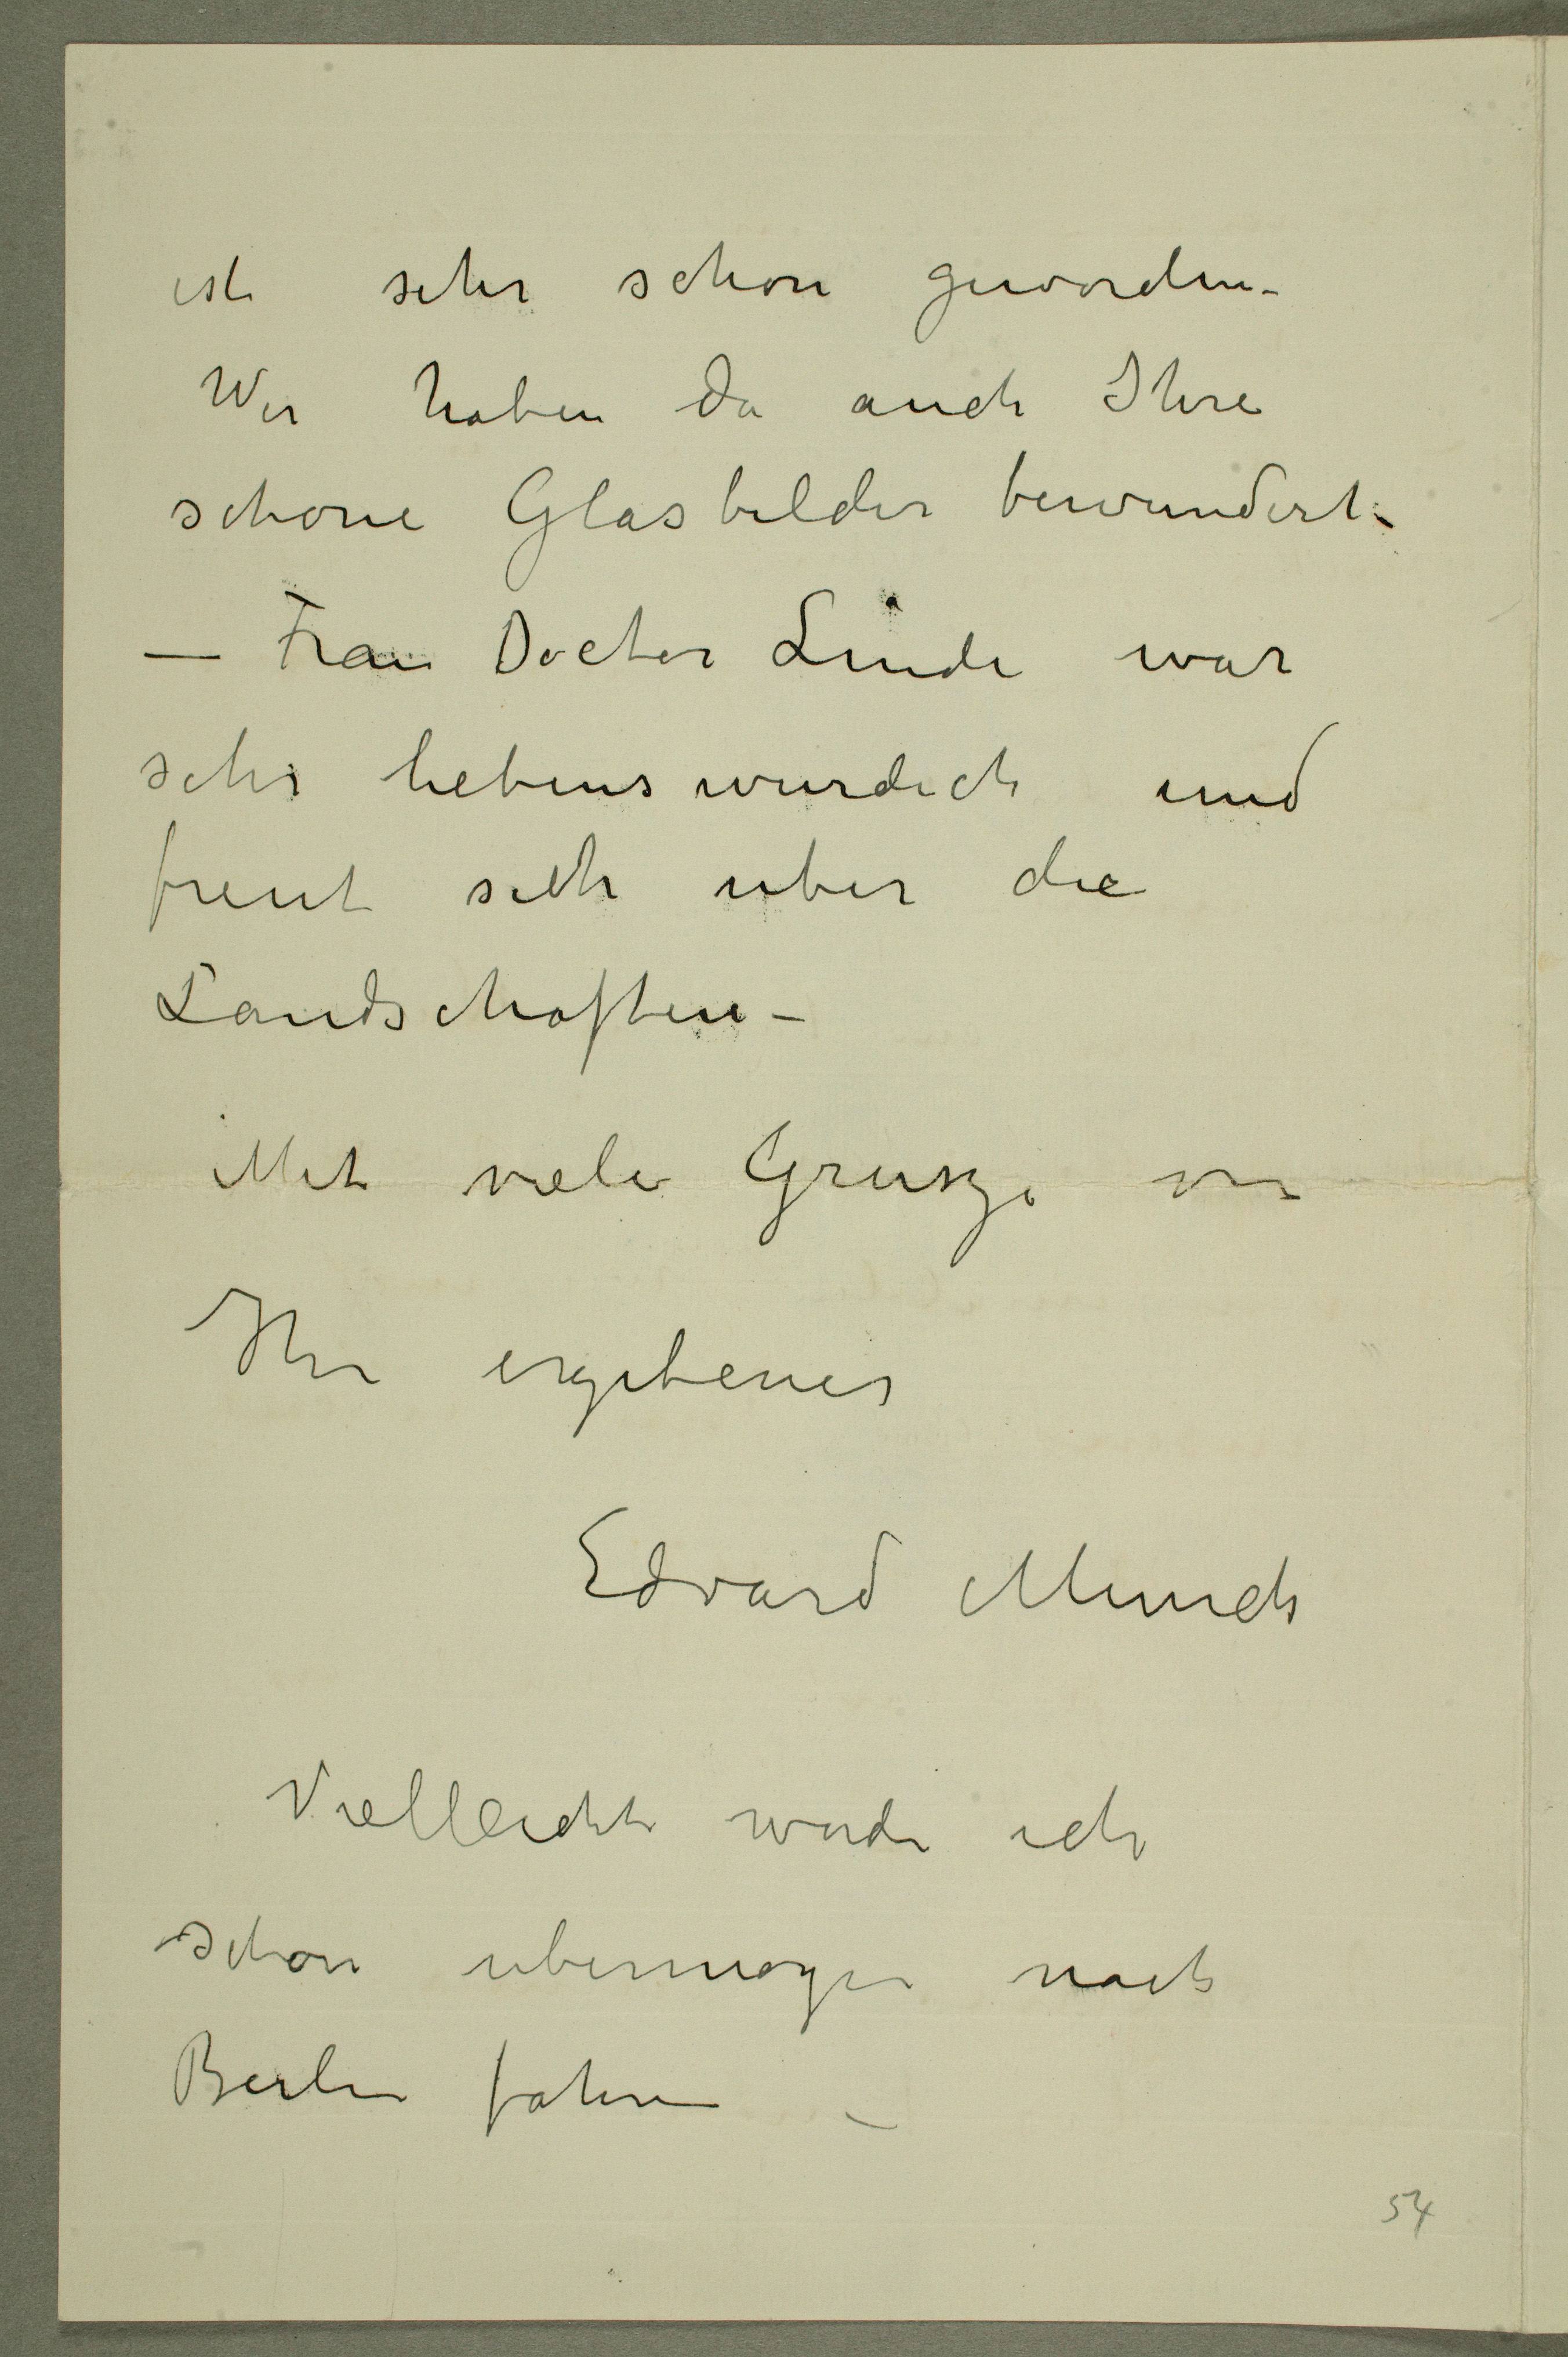 ist sehr schon geworden –
Wir haben da auch Ihre
schone Glasbilder bewundert. –
— Frau Doctor Linde war
sehr liebenswurdich und
freut sich uber die
Landschaften –
Mit viele Grusze von
Ihr ergebener
Edvard Munch
Vielleicht werde ich
schon ubermorgen nach
Berlin fahren –
54